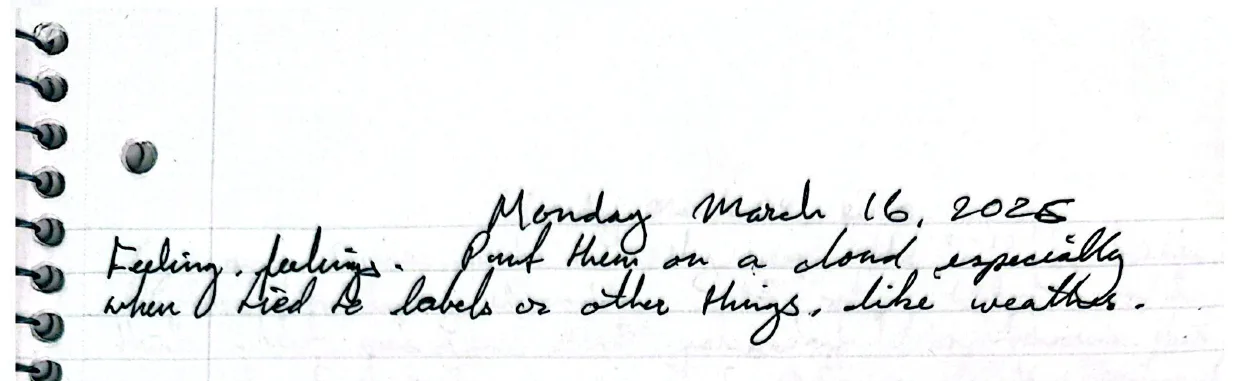 Monday March 16, 2026
Feeling, feelings. Put them on a cloud especially
when tied to labels or other things, like weather.